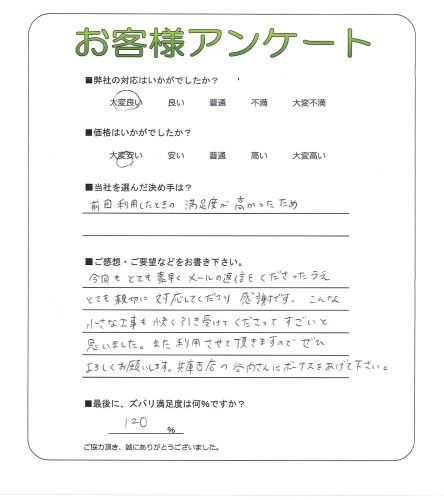 お客様アンケート
■弊社の対応はいかがでしたか?
大変良い 良い 普通 不満 大変不満
■価格はいかがでしたか?
大変安い 安い 普通 高い 大変高い
■当社を選んだ決め手は?
前回利用したときの 満足度が 高かったため
■ご感想・ご要望などをお書き下さい。
今回も とても 素早く メールの返信を くださったうえ
とても 親切に 対応してくださり 感謝です。 こんな
小さな工事も 快く 引き受けて くださって すごいと
思いました。 また 利用させて 頂きますので ぜひ
よろしくお願いします。兵庫支店の 谷内さんにボーナスをあげて下さい。
■最後に、ズバリ満足度は何%ですか?
120 %
ご協力頂き、誠にありがとうございました。